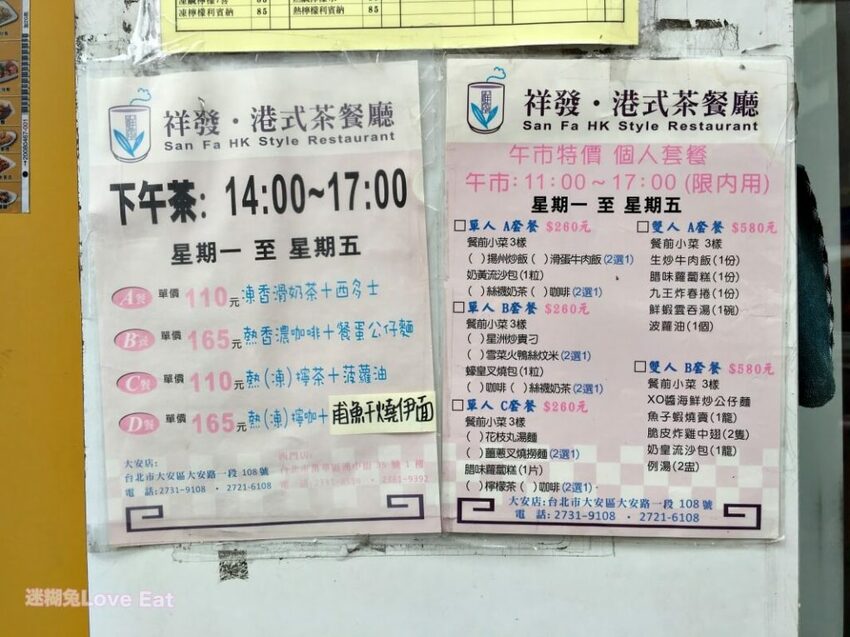 凍檸檬利賓納 85
熱檸檬利賓納 85
祥發・港式茶餐廳
San Fa HK Style Restaurant
下午茶: 14:00~17:00
星期一 至 星期五
A餐 單價 110元 凍香滑奶茶+西多士
B餐 單價 165元 熱香濃咖啡+餐蛋公仔麵
C餐 單價 110元 熱(凍)檸茶+菠蘿油
D餐 單價 165元 熱(凍)檸咖+甫魚干燒伊面
大安店:
台北市大安區大安路一段 108號
電 話: 2731-9108 ・ 2721-6108
西門店:
祥發・港式茶餐廳
San Fa HK Style Restaurant
午市特價 個人套餐
午市: 11:00~17:00 (限內用)
星期一 至 星期五
□單人 A套餐 $260元
餐前小菜 3樣
( )揚州炒飯( )滑蛋牛肉飯(2選1)
奶黃流沙包(1粒)
( )絲襪奶茶 ( )咖啡(2選1)
□單人 B套餐 $260元
餐前小菜 3樣
( )星洲炒貴刁
( )雪菜火鴨絲炆米(2選1)
蠔皇叉燒包(1粒)
( )咖啡 ( )絲襪奶茶(2選1)
□單人 C套餐 $260元
餐前小菜 3樣
( )花枝丸湯麵
( )薑蔥叉燒撈麵(2選1)
腊味蘿蔔糕(1片)
( )檸檬茶 ( )咖啡(2選1)
□雙人 A套餐 $580元
餐前小菜 3樣
生炒牛肉飯(1份)
腊味蘿蔔糕(1份)
九王炸春捲(1份)
鮮蝦雲吞湯(1碗)
波蘿油(1個)
□雙人 B套餐 $580元
餐前小菜 3樣
XO醬海鮮炒公仔麵
魚子蝦燒賣(1籠)
脆皮炸雞中翅(2隻)
奶皇流沙包(1籠)
例湯(2盅)
大安店:台北市大安區大安路一段 108號
電 話: 2731-9108 ・ 2721-6108
迷糊兔Love Eat